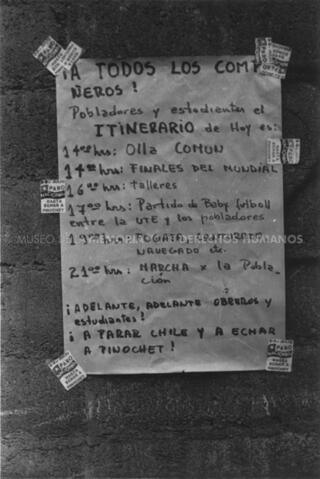 ¡A TODOS LOS COMPA
ÑEROS!
Pobladores y estudiantes el
ITINERARIO de Hoy es:
14ºº hrs: Olla COMUN
14ºº hrs: FINALES DEL MUNDIAL
16ºº hrs: talleres
17ºº hrs: Partido de Baby futboll
entre la UTE y los pobladores
19ºº hrs: FOGATA,
NAVEGADO etc.
21ºº hrs: MARCHA x la Pobla_
ción
¡ADELANTE, ADELANTE OBREROS y
estudiantes!
¡A PARAR CHILE Y A ECHAR
A PINOCHET!
PARO
HASTA
ECHAR A
PINOCHET
MUSEO DE LA MEMORIA Y LOS DERECHOS HUMANOS